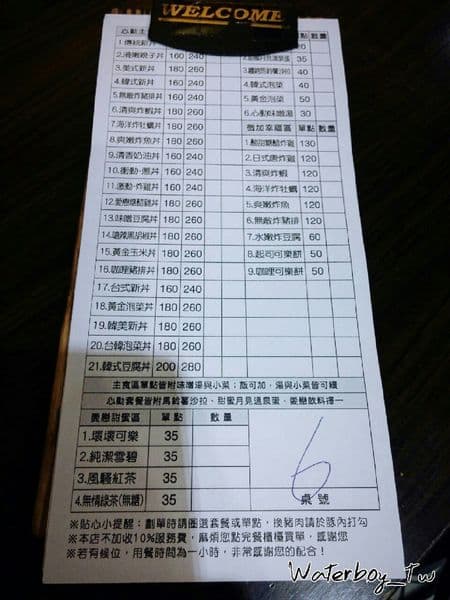 WELCOME
心動主
單點 數量
1.傳統新丼
2.滑嫩親子丼 160 240
3.美式新丼 180 260
4.韓式新丼 160 240
5.無敵炸豬排丼 160 240
6.清爽炸蝦丼 180 260
7.海洋炸牡蠣丼 180 260
8.爽嫩炸魚丼 180 260
9.清香奶油丼 160 240
10.衝動·蔥丼 160 240
11.激動·炸雞丼 160 240
12.愛戀糖醋雞丼 180 260
13.味噌豆腐丼 180 260
14.嗆辣黑胡椒丼 180 260
15.黃金玉米丼 180 260
16.咖哩豬排丼 180 260
17.台式新丼 160 240
18.黃金泡菜丼 180 260
19.韓美新丼 180 260
20.台韓泡菜丼 180 260
21.韓式豆腐丼 200 280
35
40
4.韓式泡菜 40
5.黃金泡菜 50
6.心動味噌湯 30
單點 數量
1.酸甜糖醋炸雞 130
2.日式唐炸雞 120
3.清爽炸蝦 120
4.海洋炸牡蠣 120
5.爽嫩炸魚 120
6.無敵炸豬排 120
7.水嫩炸豆腐 60
8.起司可樂餅 50
9.咖哩可樂餅 50
主食區單點皆附味噌湯與小菜；飯可加，湯與小菜皆可續
心動套餐皆附馬鈴薯沙拉、甜蜜月見溫泉蛋、愛戀飲料擇一
愛戀甜蜜區 單點 數量
1.壞壞可樂 35
2.純潔雪碧 35
3.風騷紅茶 35
4.無情綠茶(無糖) 35
6
桌號
※貼心小提醒：劃單時請圈選套餐或單點，換豬肉請於豚內打勾
※本店不加收10%服務費，麻煩您點完餐櫃檯買單，感謝您
※若有候位，用餐時間為一小時，非常感謝您的配合！
Waterboy_tw